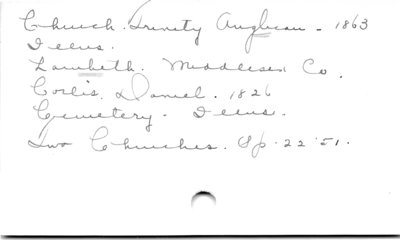 Church. Trinity Anglican - 1863
Illus.
Lambeth. Middlesex Co.
Corlis, Daniel. 1826
Cemetery. Illus.
Two Churches. Op. 22 '51.